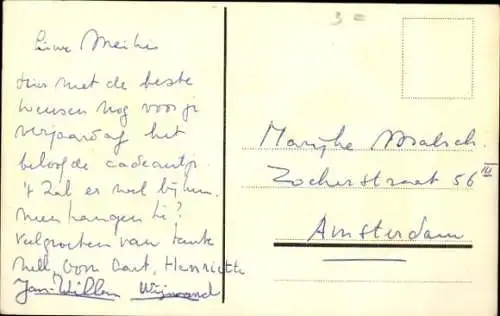 Lieve
Hier met de beste
wensen nog voor je
verjaardag het
beloofde cadeautje.
't Zal er wel bij
hangen hè?
Veel groeten van tante
Nell, Oom Aart, Henriette
Jan-Willem Wijnand
3 =
Marijke
Zocherstraat 56 III
Amsterdam